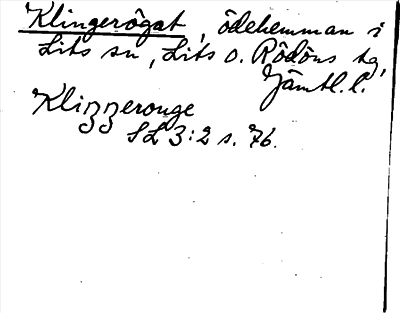 Klingerôgat, ödehemman i
Lits sn, Lits o. Rödöns tg,
Jämtl. l.
Klizzerouge
SL 3:2 s. 76.